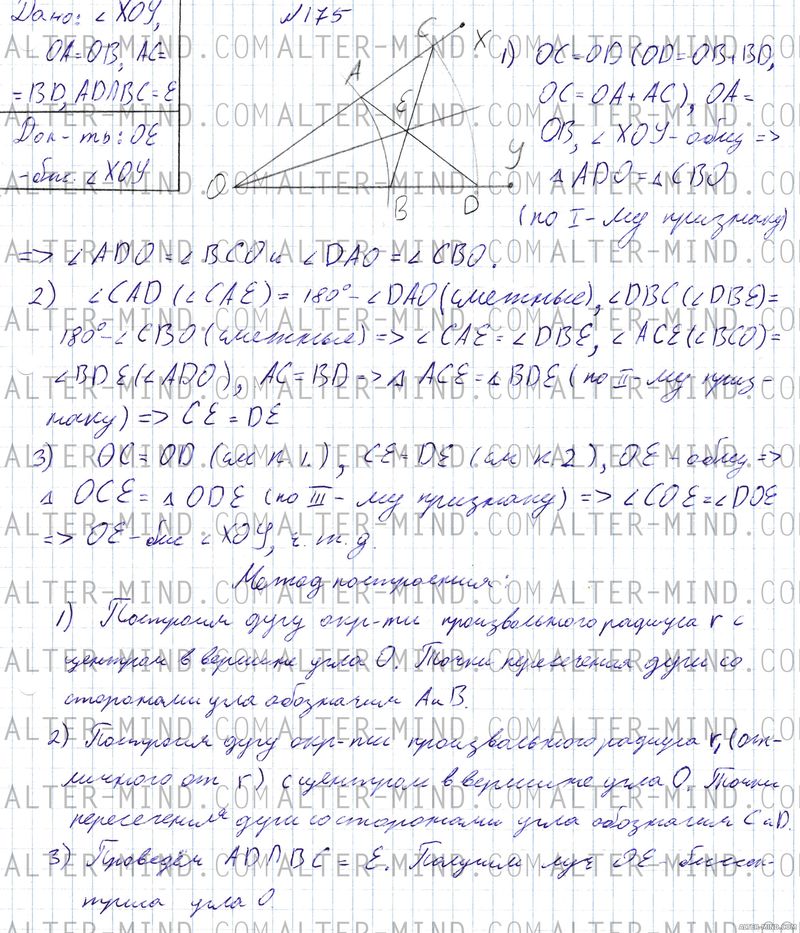 Дано: ∠XOY,
OA=OB, AC=
=BD, AD∩BC=E
Док-ть: OE
-бис. ∠XOY
№175
C
X
A
E
Y
O
B
D
1) OC=OD (OD=OB+BD,
OC=OA+AC), OA=
OB, ∠XOY-общ =>
△ADO=△CBO
(по I-му признаку)
=> ∠ADO=∠BCO и ∠DAO=∠CBO.
2) ∠CAD (∠CAE)=180°-∠DAO (смежные), ∠DBC (∠DBE)=
180°-∠CBO (смежные) => ∠CAE=∠DBE, ∠ACE(∠BCO)=
∠BDE(∠ADO), AC=BD => △ACE=△BDE (по II-му приз-
наку) => CE=DE
3) OC=OD (см п 1.), CE=DE (см п. 2), OE-общ =>
△OCE=△ODE (по III-му признаку) => ∠COE=∠DOE
=> OE-бис ∠XOY, ч. т. д.
Метод построения:
1) Построим дугу окр-ти произвольного радиуса r с
центром в вершине угла O. Точки пересечения дуги со
сторонами угла обозначим A и B.
2) Построим дугу окр-ти произвольного радиуса r₁ (от-
личного от r) с центром в вершине угла O. Точки
пересечения дуги со сторонами угла обозначим C и D.
3) Проведём AD∩BC=E. Получим луч OE-биссек-
триса угла O.
ALTER-MIND.COM